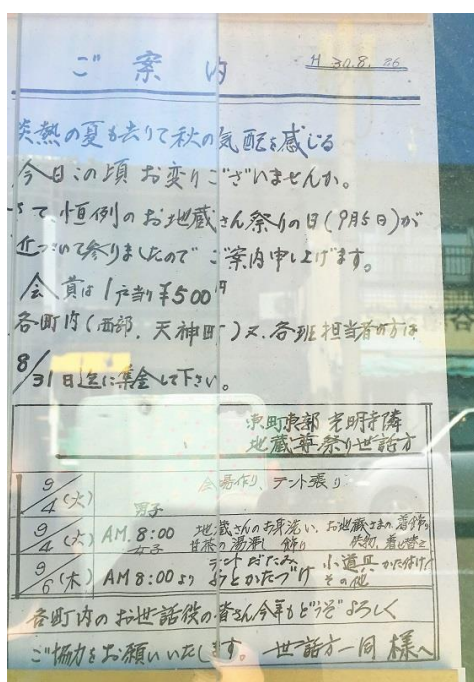 ご案内
H 30.8.26
炎熱の夏も去りて秋の気配を感じる
今日この頃お変りございませんか。
さて恒例のお地蔵さん祭りの日(9月5日)が
近づいて参りましたのでご案内申し上げます。
会費は1戸当り¥500円
各町内(西部、天神町)又、各班担当者の方は
8/31日迄に集金して下さい。
東町東部 光明寺隣
地蔵尊祭り世話方
9/4(火) 会場作り、テント張り
男子
9/4(火) AM.8:00 地蔵さんのお身洗い、お地蔵さまの着飾り
女子 甘茶の湯湧し 飾り 供物、着せ替え
テントたたみ 小道具かた付け
9/6(木) AM8:00より あとかたづけ その他
各町内のお世話役の皆さん今年もどうぞよろしく
ご協力をお願いいたします。世話方一同 様へ